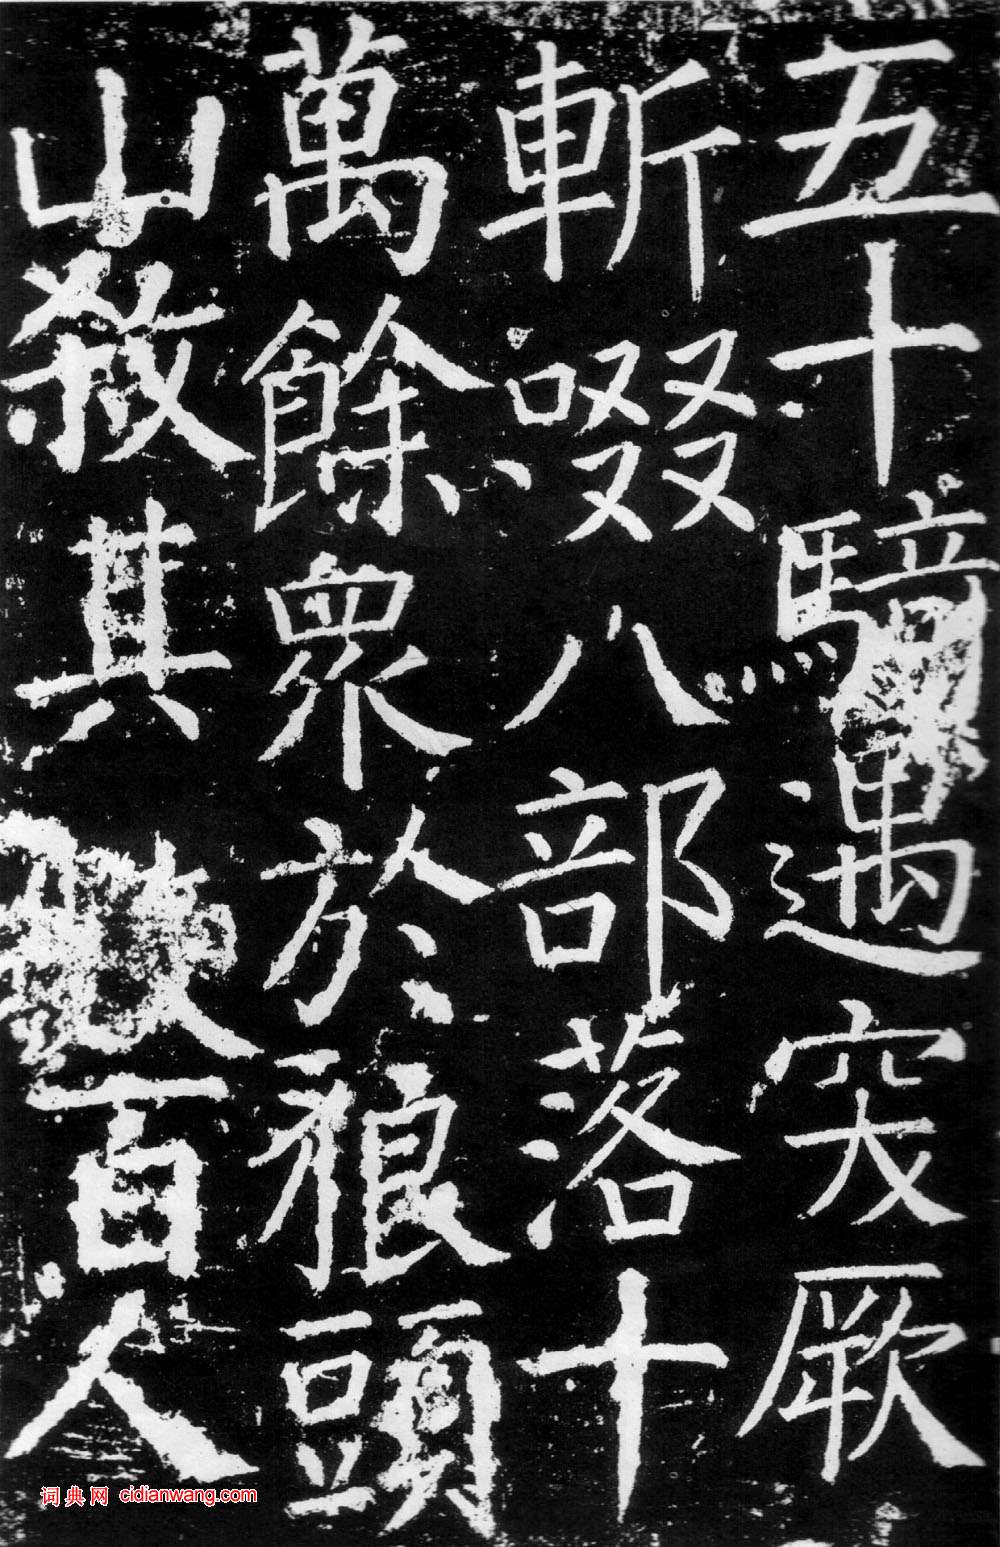 五十騎遇突厥
斬啜八部落十
萬餘衆於狼頭
山殺其數百人
词典网 cidianwang.com